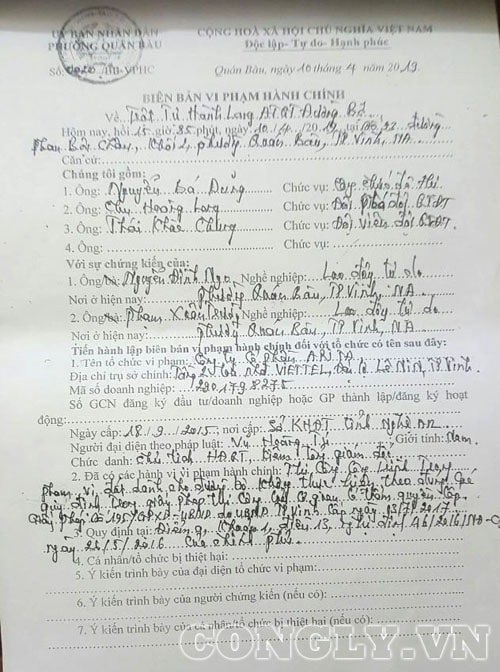 UỶ BAN NHÂN DÂN
PHƯỜNG QUÁN BÀU
CỘNG HOÀ XÃ HỘI CHỦ NGHĨA VIỆT NAM
Độc lập- Tự do- Hạnh phúc
Số: /BB-VPHC
Quán Bàu, ngày 10 tháng 4 năm 2019.
BIÊN BẢN VI PHẠM HÀNH CHÍNH
Về Trật Tự Hành Lang ATGT Đường Bộ
Hôm nay, hồi 15 giờ 35 phút, ngày 10/4/2019, tại đường
Phan Bội Châu, Khối 2, phường Quán Bàu, TP Vinh, NA
Căn cứ:
Chúng tôi gồm:
1. Ông: Nguyễn Bá Dũng Chức vụ:
2. Ông: Chu Hoàng Long Chức vụ: Đội Phó đội QTĐT
3. Ông: Thái Khắc Chung Chức vụ: Đội viên đội QTĐT
4. Ông: Chức vụ:
Với sự chứng kiến của:
1. Ông/bà: Nguyễn Đình Nga Nghề nghiệp: Lao động tự do
Nơi ở hiện nay: Phường Quán Bàu, TP Vinh, NA
2. Ông/bà: Phạm Xuân Nghề nghiệp: Lao động tự do
Nơi ở hiện nay: Phường Quán Bàu, TP Vinh, NA
Tiến hành lập biên bản vi phạm hành chính đối với tổ chức có tên sau đây:
1. Tên tổ chức vi phạm: Công ty Cổ phần ARITA
Địa chỉ trụ sở chính: Tầng 2, toà nhà VIETTEL, Đại lộ Lê Nin, TP Vinh
Mã số doanh nghiệp: 290.179.8275
Số GCN đăng ký đầu tư/doanh nghiệp hoặc GP thành lập/đăng ký hoạt
động:
Ngày cấp: 18/9/2015; nơi cấp: Sở KHĐT tỉnh Nghệ An
Người đại diện theo pháp luật: Vũ Hoàng Giới tính: Nam
Chức danh: Chủ tịch HĐQT, kiêm Tổng giám đốc
2. Đã có các hành vi vi phạm hành chính: Thi Công Công trình trong
phạm vi đất dành cho đường bộ không thực hiện theo đúng các
quy định trong giấy phép thi Công của Cơ quan có thẩm quyền Cấp
Giấy phép số 195/GPXD UBND do UBND TP Vinh Cấp ngày 03/7/2017
3. Quy định tại: Điểm g, Khoản 1, điều 13, nghị định 46/2016/NĐ-CP
ngày 26/5/2016 của chính phủ
4. Cá nhân/tổ chức bị thiệt hại:
5. Ý kiến trình bày của đại diện tổ chức vi phạm:
6. Ý kiến trình bày của người chứng kiến (nếu có):
7. Ý kiến trình bày của cá nhân/tổ chức bị thiệt hại (nếu có):
CONGLY.VN